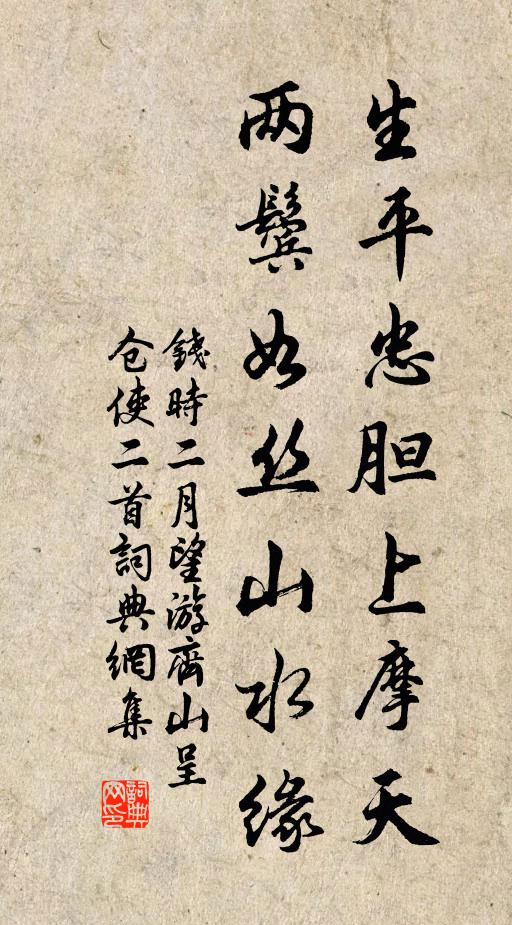 生平忠胆上摩天
两鬓如丝山水缘
錢時二月望游齊山呈
仓使二首詞典網集
詞典
网印